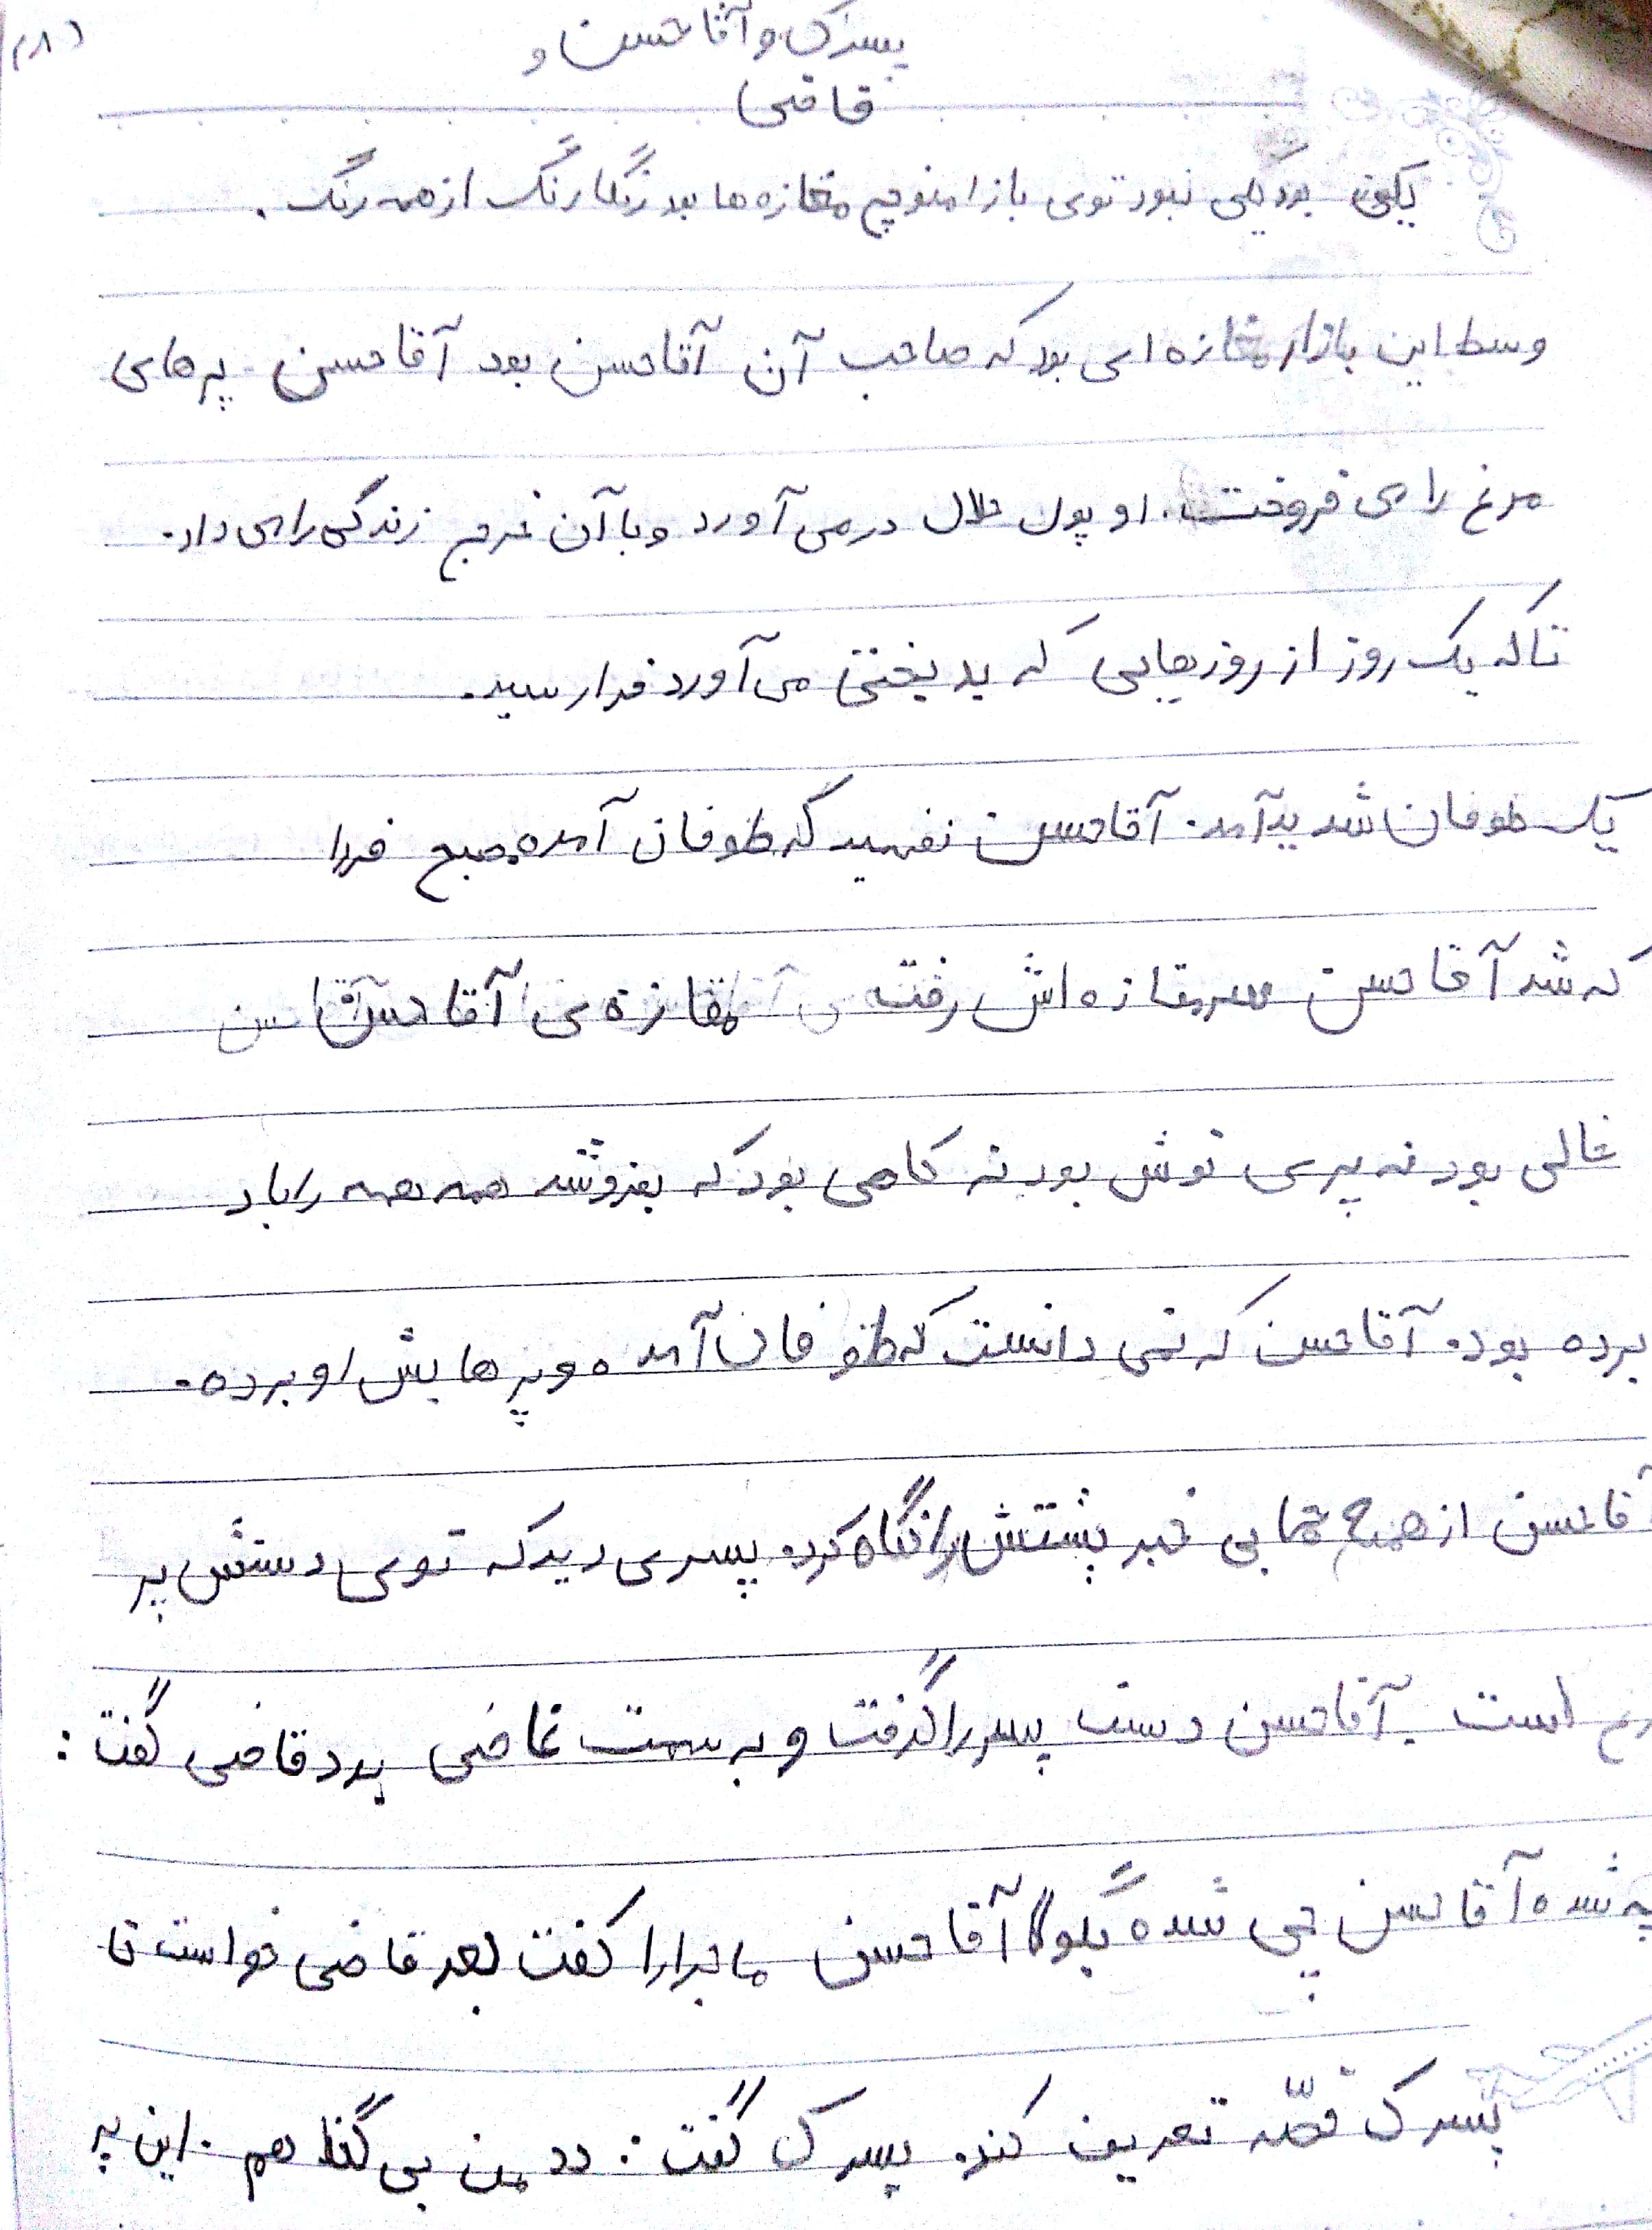 (۱۸)
پسرک و آقا حسن و
قاضی
یکی بود یکی نبود توی بازار منوچ مغازه ها بود رنگارنگ از همه رنگ .
وسط این بازار مغازه ای بود که صاحب آن آقا حسن بود آقا حسن پر های
مرغ را می فروخت. او پول حلال در می آورد و با آن خرج زندگی را می داد.
تا که یک روز از روزهایی که بد بختی می آورد فرا رسید.
یک طوفان شدید آمد. آقا حسن نفهمید که طوفان آمده صبح فردا
که شد آقا حسن سر مقازه اش رفت مقازه ی آقا حسن
خالی بود نه پری توش بود نه کاهی بود که بفروشد همه همه را باد
برده بود. آقا حسن که نمی دانست که طوفان آمده و پر هایش او برده.
آقا حسن از همه جا بی خبر پشتش را نگاه کرد. پسری دید که توی دستش پر
مرغ است. آقا حسن دست پسر را گرفت و به سمت قاضی برد قاضی گفت :
چه شده آقا حسن چی شده بگو آقا حسن ماجرا را گفت بعد قاضی خواست تا
پسرک قصّه تعریف کند. پسرک گفت : «من بی گناهم . این پر